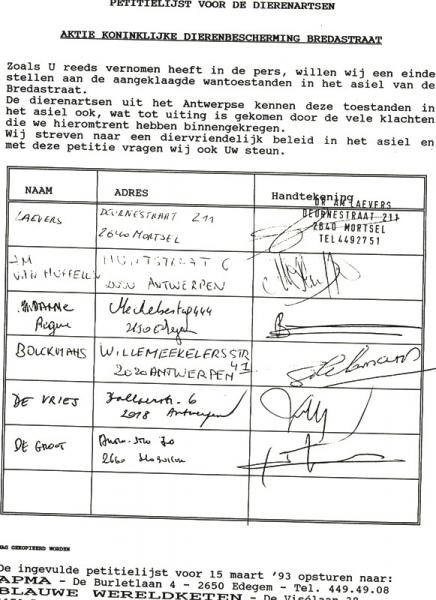 PETITIELIJST VOOR DE DIERENARTSEN
AKTIE KONINKLIJKE DIERENBESCHERMING BREDASTRAAT
Zoals U reeds vernomen heeft in de pers, willen wij een einde
stellen aan de aangeklaagde wantoestanden in het asiel van de
Bredastraat.
De dierenartsen uit het Antwerpse kennen deze toestanden in
het asiel ook, wat tot uiting is gekomen door de vele klachten
die we hieromtrent hebben binnengekregen.
Wij streven naar een diervriendelijk beleid in het asiel en
met deze petitie vragen wij ook Uw steun.
NAAM ADRES Handtekening
DR AM LAEVERS
DEURNESTRAAT 211
2640 MORTSEL
TEL4492751
LAEVERS DEURNESTRAAT 211
2640 MORTSEL
VAN HUFFELEN
2000 ANTWERPEN
2650 Edegem
BOLCKMANS WILLEMEEKELERSSTR
41
2020 ANTWERPEN
DE VRIES
2018 Antwerpen
DE GROOT
2660
MAG GEKOPIEERD WORDEN
De ingevulde petitielijst voor 15 maart '93 opsturen naar:
APMA - De Burletlaan 4 - 2650 Edegem - Tel. 449.49.08
BLAUWE WERELDKETEN - De Visélaan 38